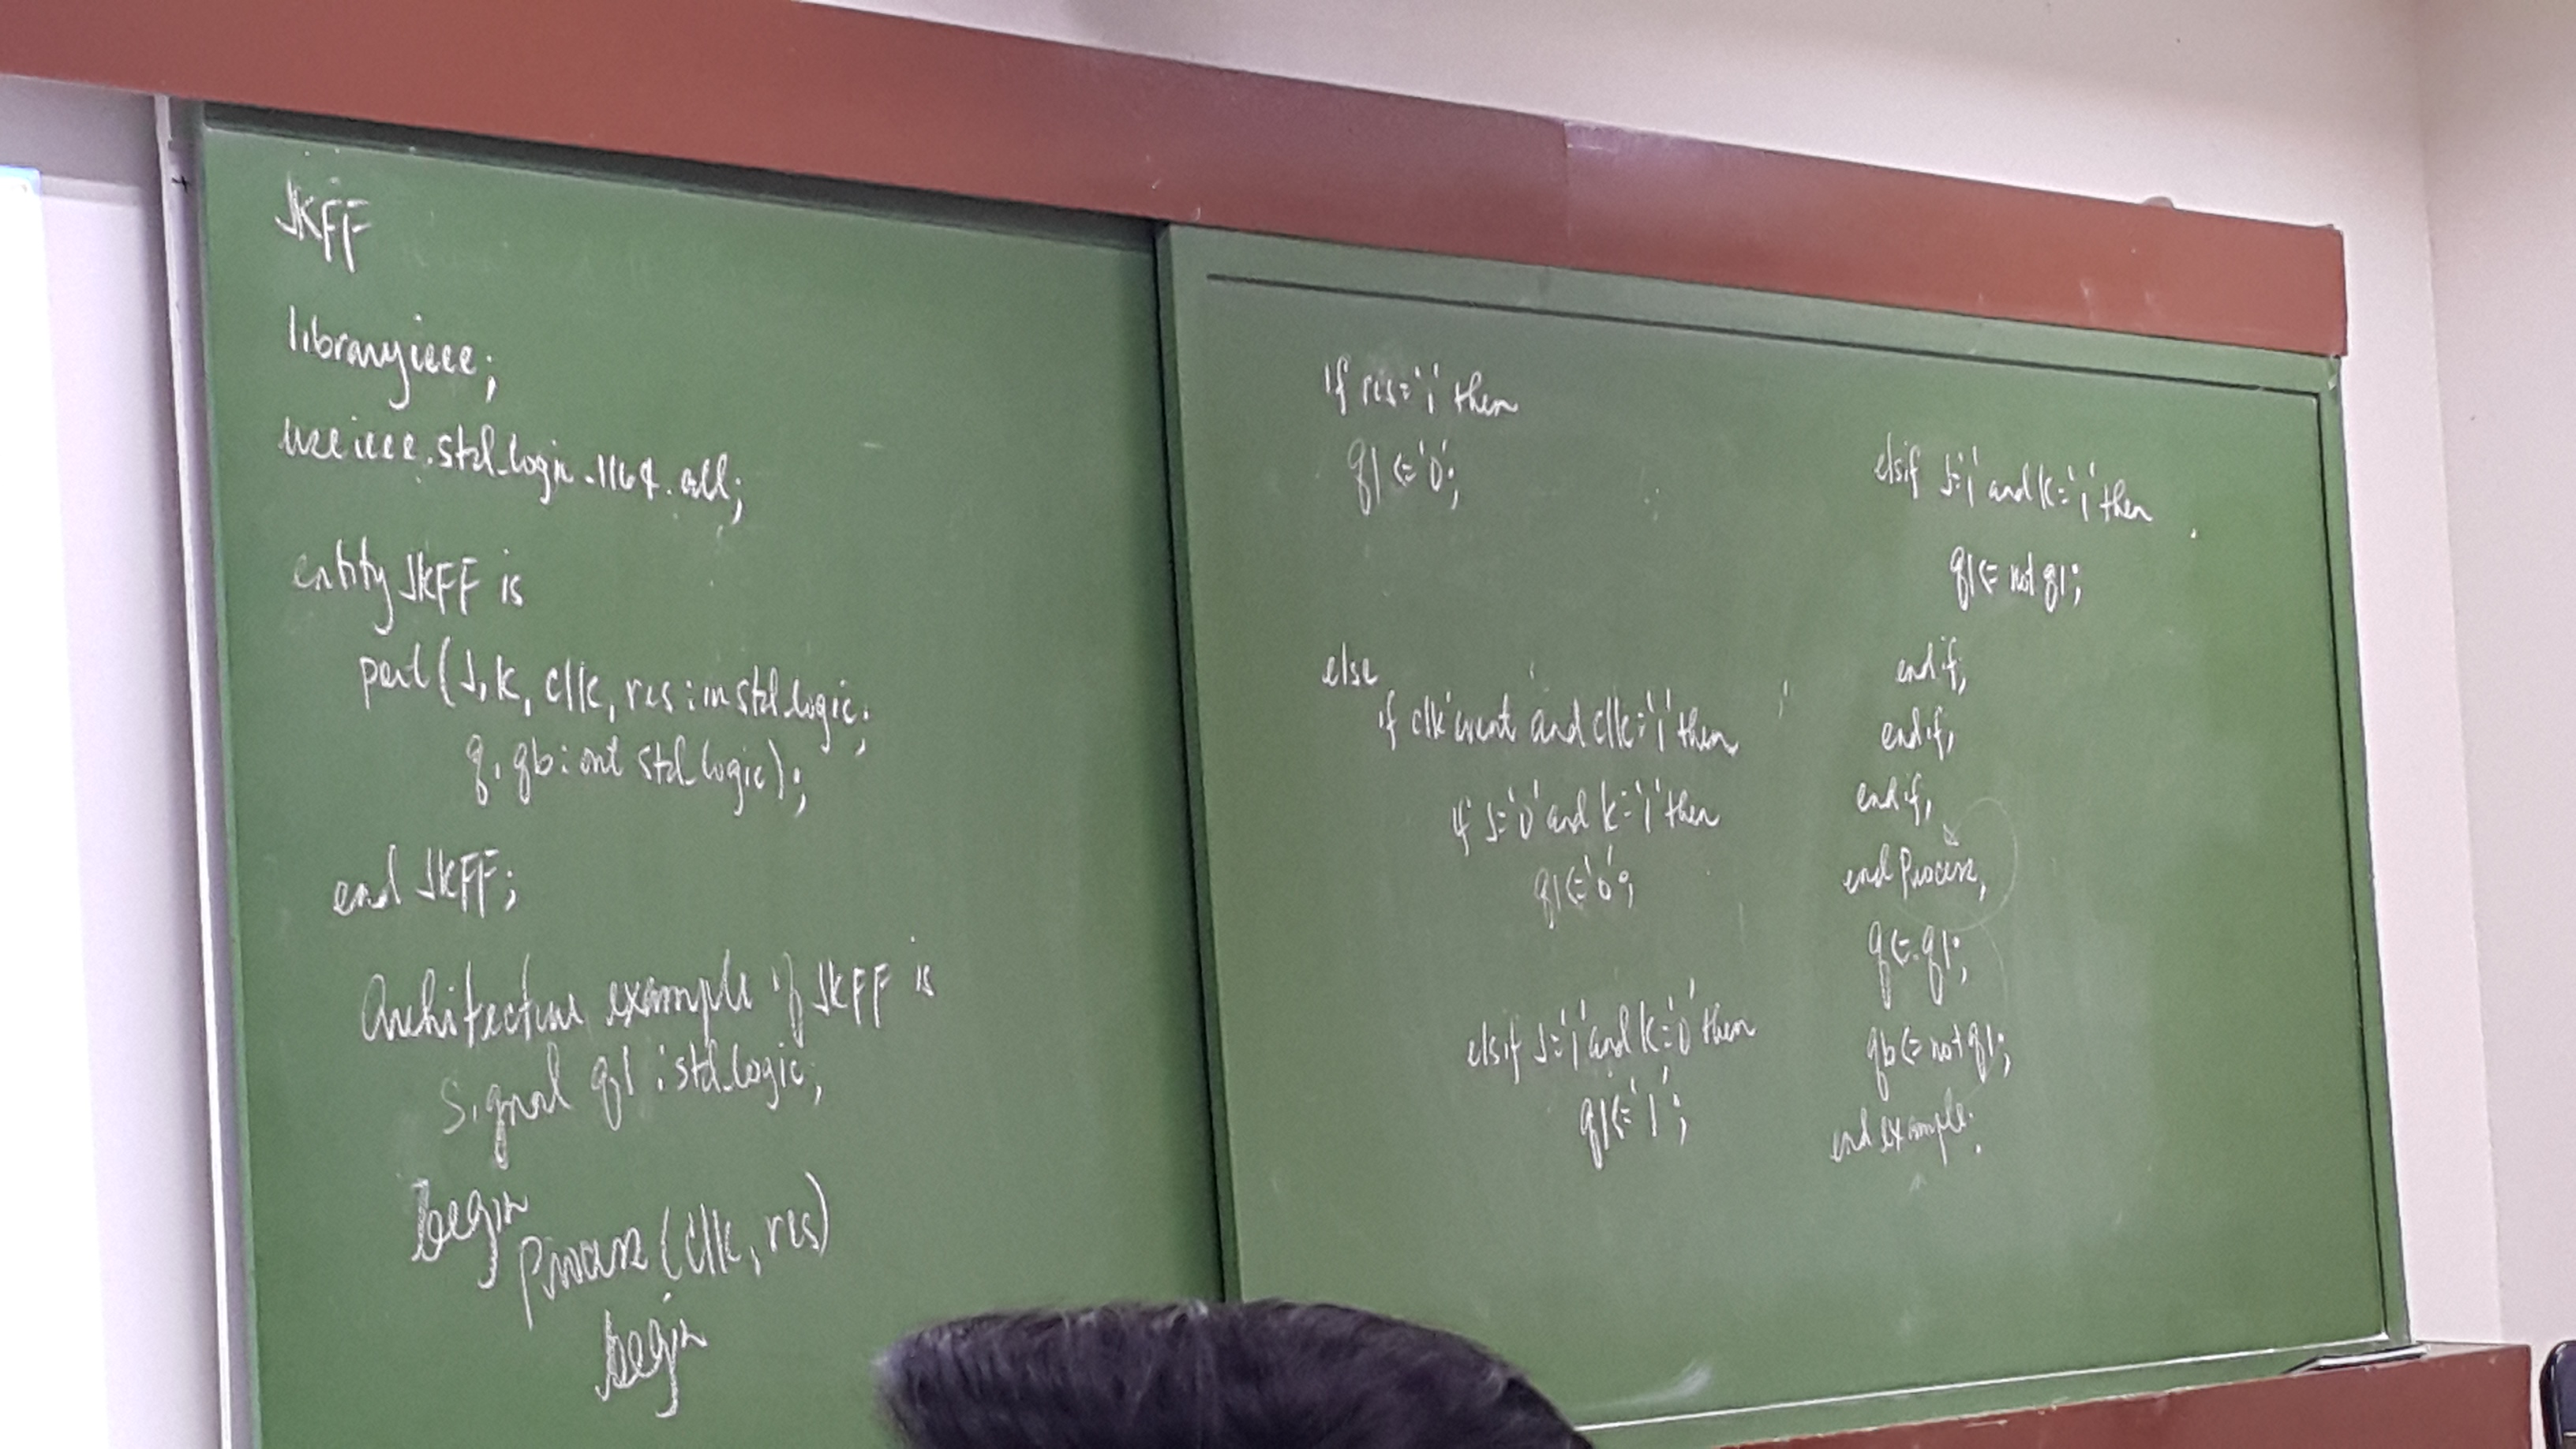 JKFF
library ieee;
use ieee.std_logic_1164.all;
entity JKFF is
port(J,K, clk, res:in std_logic;
q, qb:out std_logic);
end JKFF;
Architecture example of JKFF is
signal q1:std_logic;
begin
Process(clk, res)
begin
if res='1' then
q1<='0';
else
if clk'event and clk='1' then
if J='0' and k='1' then
q1<='0';
elsif J='1' and K='0' then
q1<='1';
elsif J='1' and K='1' then
q1<= not q1;
end if;
end if;
end if;
end Process;
q<=q1;
qb<=not q1;
end example;